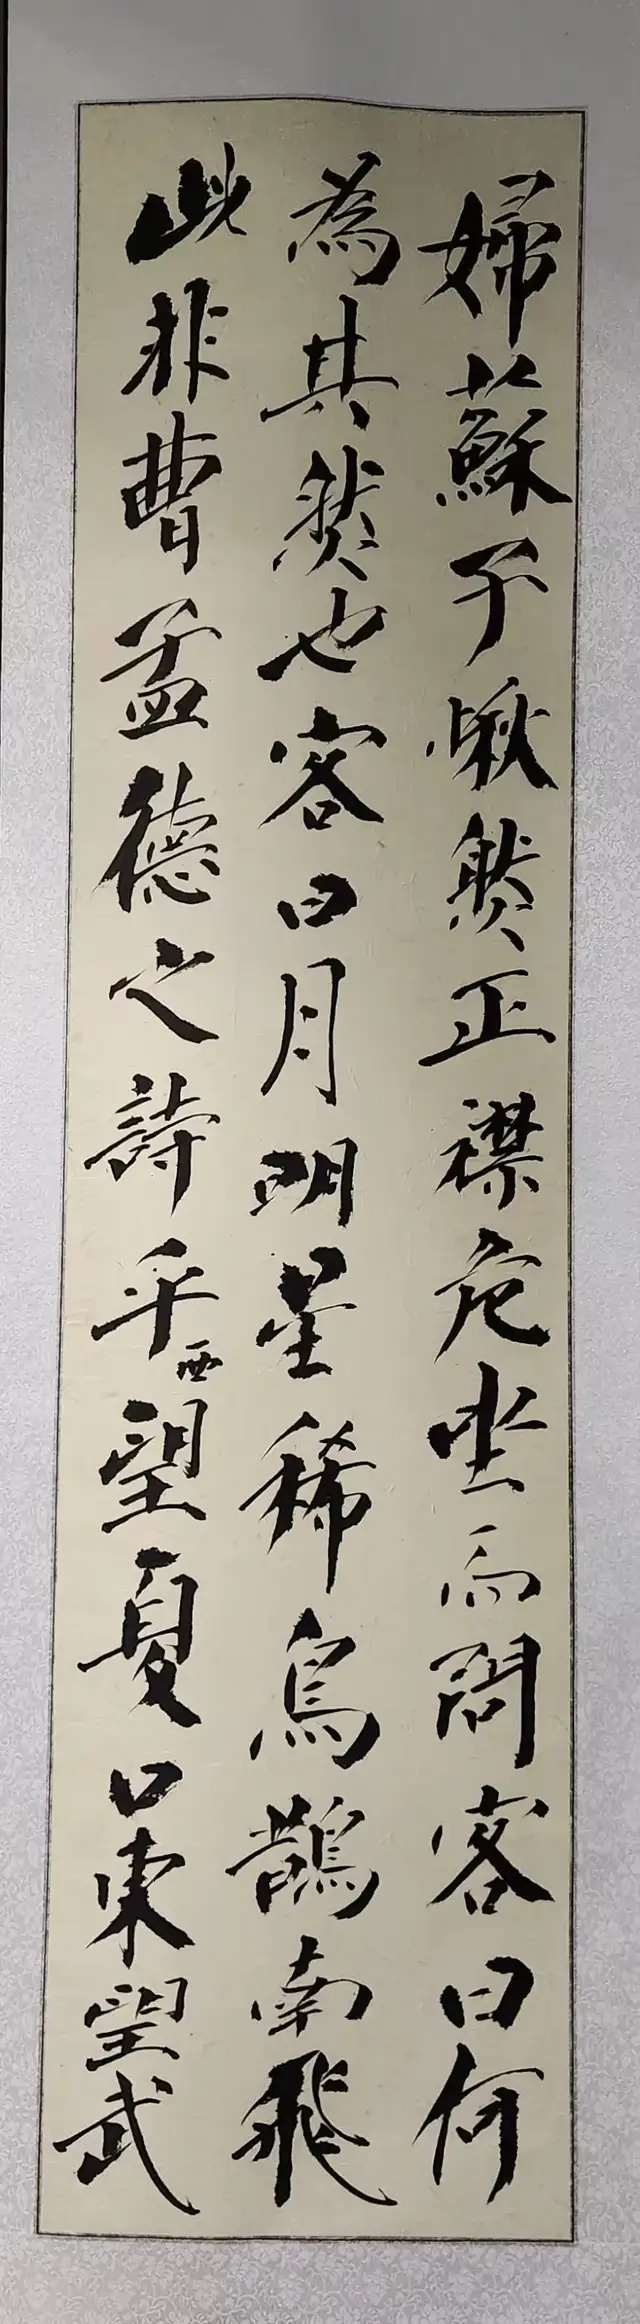 婦蘇子愀然正襟危坐而問客曰何
為其然也客曰月明星稀烏鵲南飛
此非曹孟德之詩乎西望夏口東望武